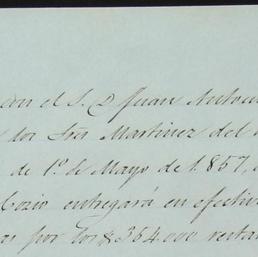 con el S. D. Juan Antonio
los Sres Martinez del
de 1º de Mayo de 1.857,
Cozio entregará en efectivo
por los $364.000 restan